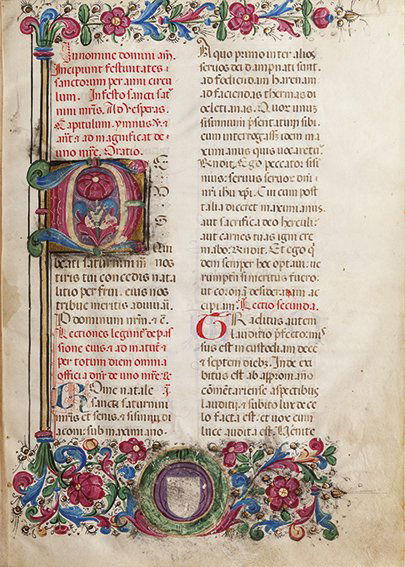 In nomine domini am̄.
Incipiunt festiuitates
sanctorum per anni circu
lum. In festo sancti satur
nini mr̄is. Ad vesperas.
Capitulum. ymnus. &
ant̄. & ad magnificat de
uno mr̄e. Oratio.
Deus
qui nos
beati saturnini m̄
tui concedis nata
litio per frui. eius nos
tribue meritis adiuuā.
P dominum nr̄m. & c̄.
Lectiones legunt̄ de pas
sione eius & ad matut̄ &
per totum diem omnia
officia dn̄r de uno mr̄e. &
Rome natale
sancti saturnini
mr̄is et senis. & sisinni di
aconi. sub maximiano
A quo primo inter alios
seruos dei dampnati sunt
ad fodiendam harenam
ad faciendas thermas di
ocletianas. Quor unus
sisinnium presentatum sibi.
cum interrogasset idem ma
ximianus quis uocaretur
Rn̄dit. Ego peccator sisin
nius: seruus seruor dn̄i
nr̄i ihū xp̄i. Cui cum post
alia diceret maximianus.
aut sacrifica deo herculi
aut carnes tuas igni cre
mabo: Rn̄dit. Et ego q
dem semper hoc optaui. ue
rumptn̄ si meritus fuero
ut coronā desideratam ac
cipiam. Lectio secunda.
Traditus autem
lauditio p̄fecto. mis
sus est in custodiam decē
& septem diebȝ. Inde ex
ditus est ab asprono mā
cōmētariensi aspectibus
laudicii. & subito lux de ce
lo facta est: et uox cum
luce audita est. Uenite